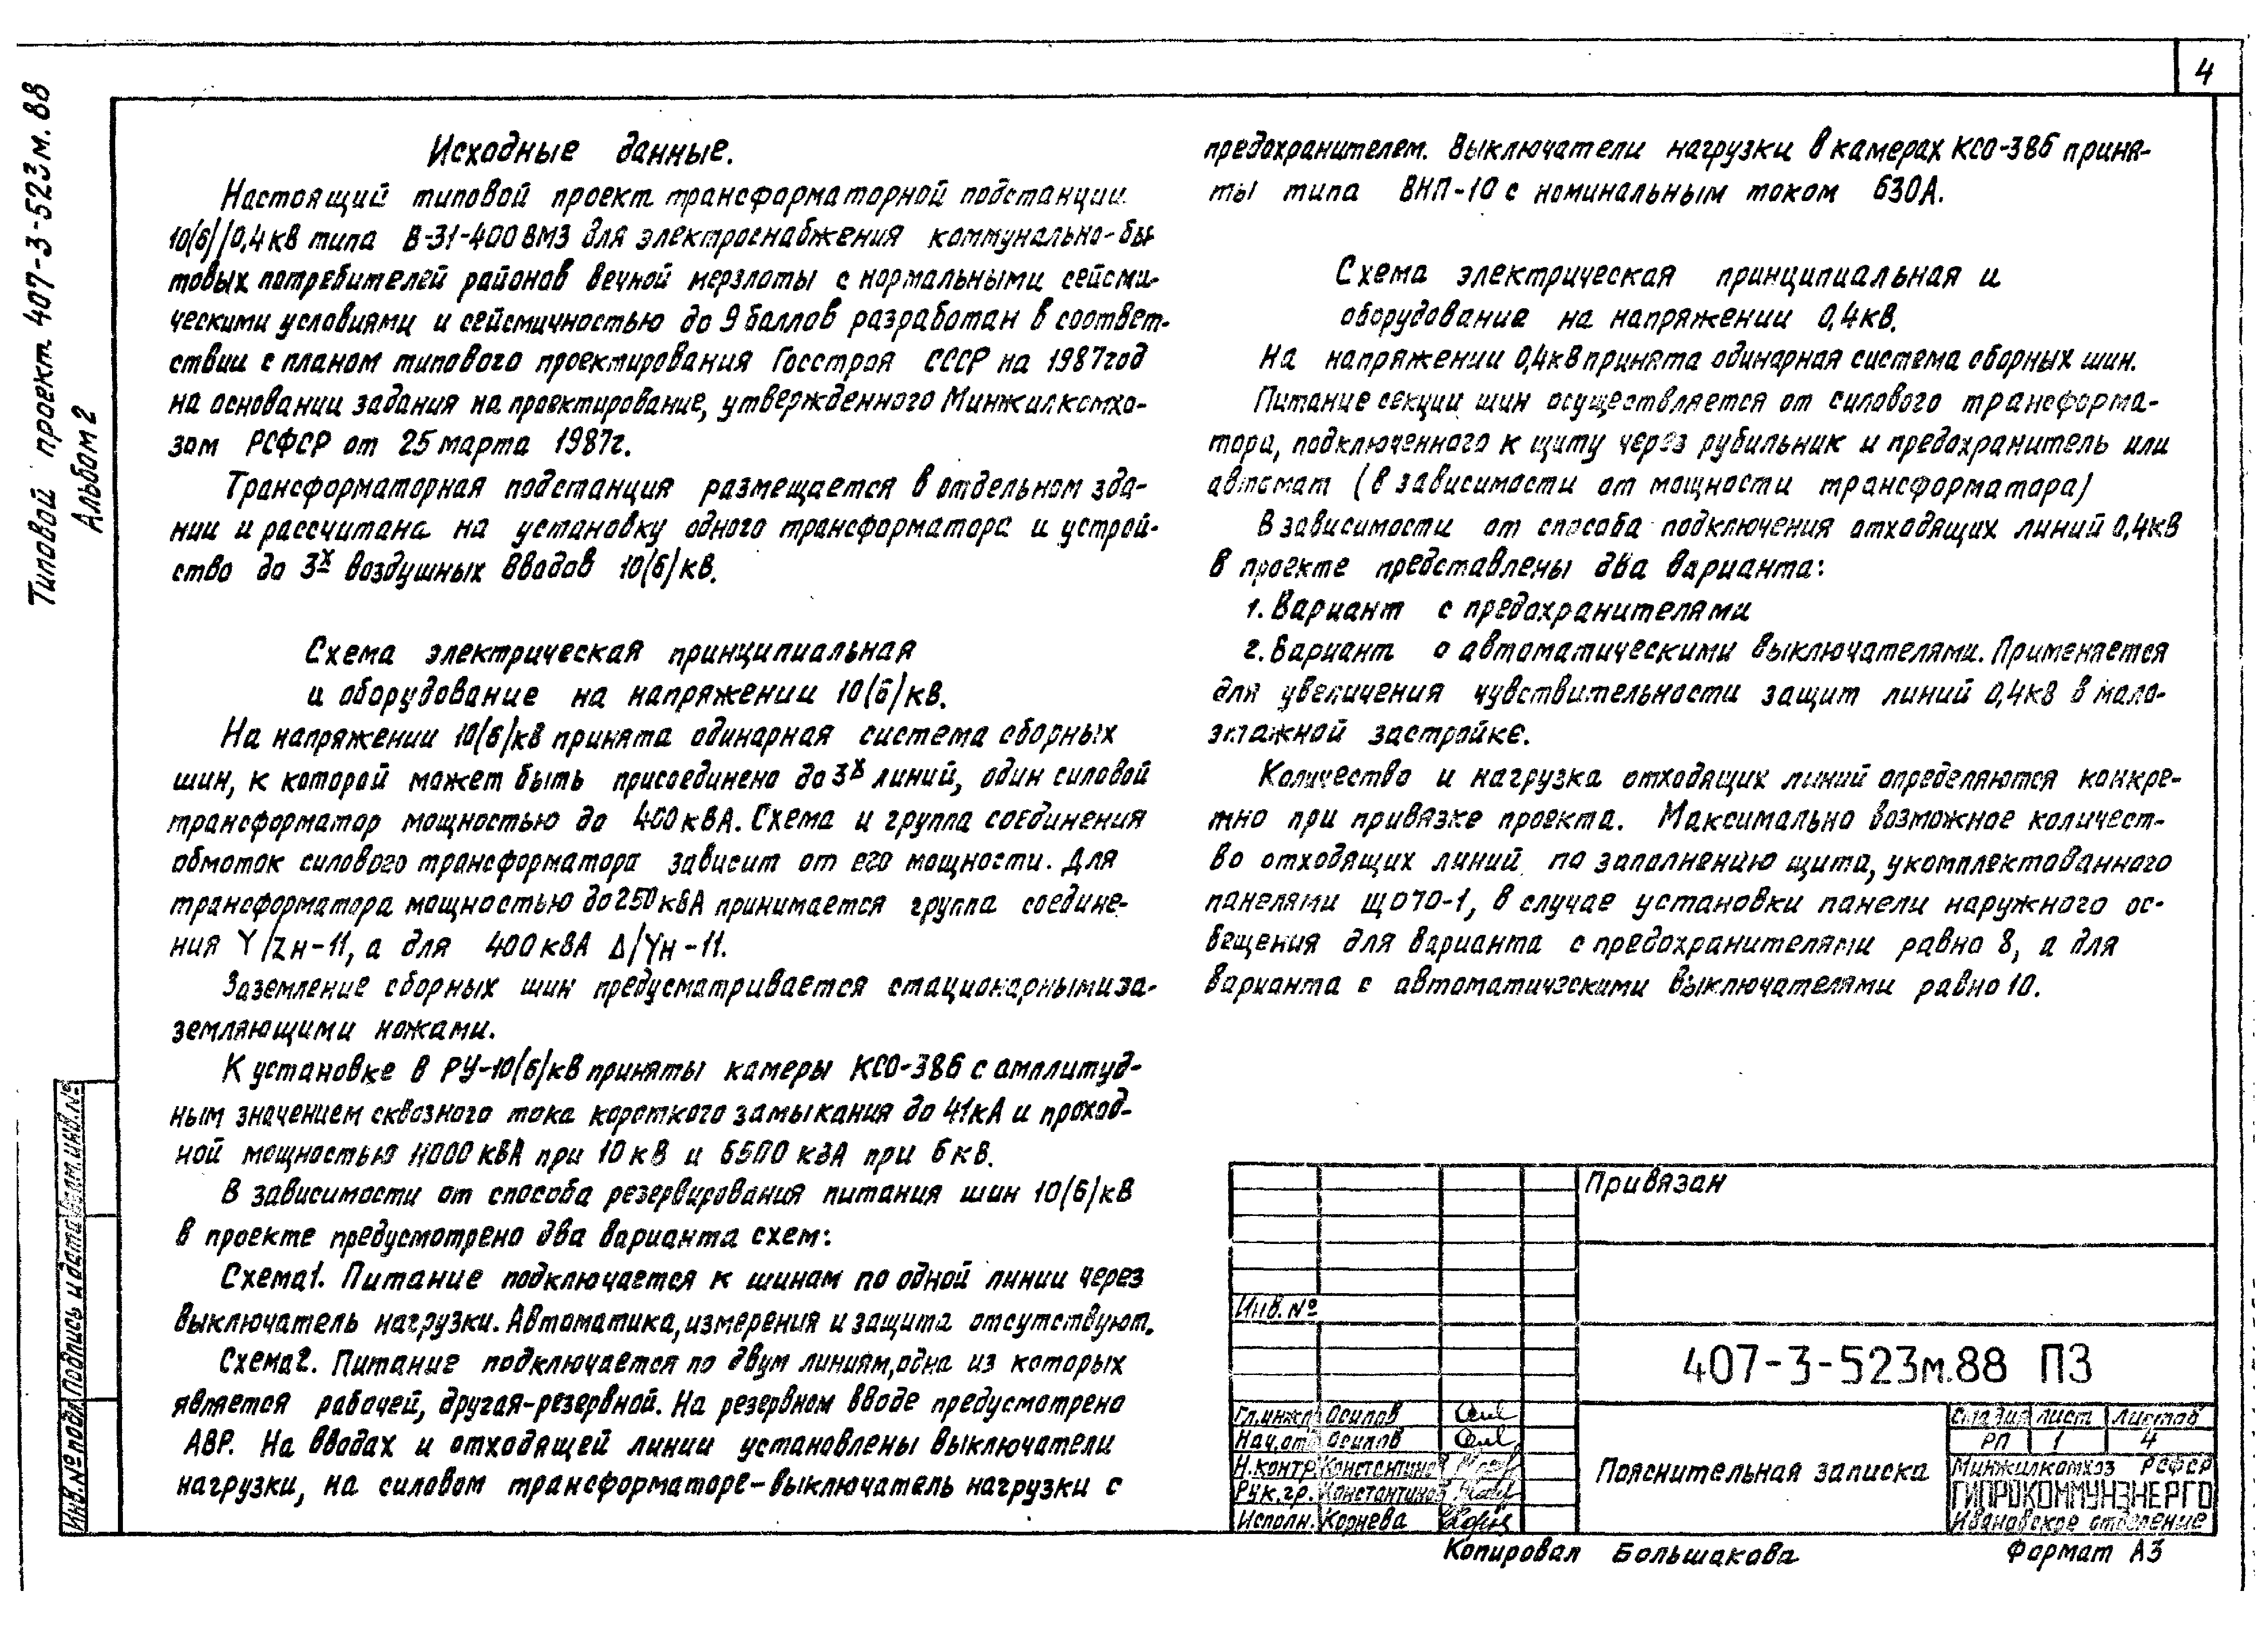 4
Типовой проект 407-3-523м.88
Альбом 2
Исходные данные.
Настоящий типовой проект трансформаторной подстанции
10(6)/0,4кв типа В-31-400ВМЗ для электроснабжения коммунально-бы
товых потребителей районов вечной мерзлоты с нормальными сейсми-
ческими условиями и сейсмичностью до 9 баллов разработан в соответ-
ствии с планом типового проектирования Госстроя СССР на 1987год
на основании задания на проектирование, утвержденного Минжилкомхо-
зом РСФСР от 25 марта 1987г.
Трансформаторная подстанция размещается в отдельном зда-
нии и рассчитана на установку одного трансформатора и устрой-
ство до 3х воздушных вводов 10(6)кв.
Схема электрическая принципиальная
и оборудование на напряжении 10(6)кв.
На напряжении 10(6)кв принята одинарная система сборных
шин, к которой может быть присоединено до 3х линий, один силовой
трансформатор мощностью до 400кВА. Схема и группа соединения
обмоток силового трансформатора зависит от его мощности. Для
трансформатора мощностью до 250кВА принимается группа соедине-
ния Y/Zн-11, а для 400кВА Δ/Yн-11.
Заземление сборных шин предусматривается стационарными за-
земляющими ножами.
К установке в РУ-10(6)кв приняты камеры КСО-386 с амплитуд-
ным значением сквозного тока короткого замыкания до 41кА и проход-
ной мощностью 11000кВА при 10кв и 6500кВА при 6кв.
В зависимости от способа резервирования питания шин 10(6)кв
в проекте предусмотрено два варианта схем:
Схема1. Питание подключается к шинам по одной линии через
выключатель нагрузки. Автоматика, измерения и защита отсутствуют.
Схема2. Питание подключается по двум линиям, одна из которых
является рабочей, другая-резервной. На резервном вводе предусмотрено
АВР. На вводах и отходящей линии установлены выключатели
нагрузки, на силовом трансформаторе-выключатель нагрузки с
предохранителем. Выключатели нагрузки в камерах КСО-386 приня-
ты типа ВНП-10 с номинальным током 630А.
Схема электрическая принципиальная и
оборудование на напряжении 0,4кв.
На напряжении 0,4кв принята одинарная система сборных шин.
Питание секции шин осуществляется от силового трансформа-
тора, подключенного к щиту через рубильник и предохранитель или
автомат (в зависимости от мощности трансформатора)
В зависимости от способа подключения отходящих линий 0,4кв
в проекте представлены два варианта:
1. Вариант с предохранителями
2. Вариант с автоматическими выключателями. Применяется
для увеличения чувствительности защит линий 0,4кв в мало-
этажной застройке.
Количество и нагрузка отходящих линий определяются конкре-
тно при привязке проекта. Максимально возможное количест-
во отходящих линий по заполнению щита, укомплектованного
панелями ЩО70-1, в случае установки панели наружного ос-
вещения для варианта с предохранителями равно 8, а для
варианта с автоматическими выключателями равно 10.
Привязан
Инв.№
407-3-523м.88 ПЗ
Гл.инж.п Осипов
Нач.отд Осипов
Н.контр. Константинов
Рук.гр. Константинов
Исполн. Корнева
Пояснительная записка
Стадия Лист Листов
РП 1 4
Минжилкомхоз РСФСР
ГИПРОКОММУНЭНЕРГО
Ивановское отделение
Инв.№ подл. Подпись и дата Взам.инв.№
Копировал Большакова
Формат А3